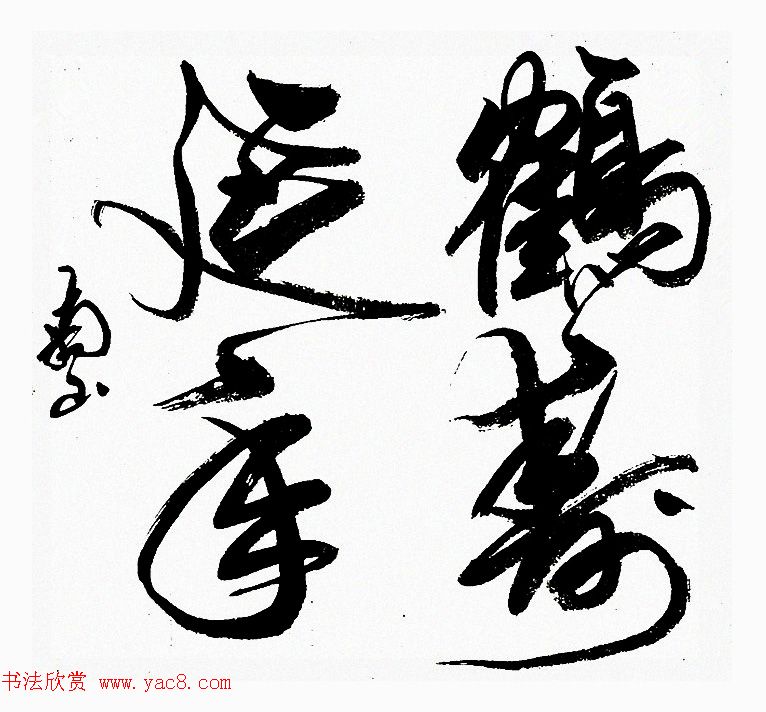 鶴壽
延年
书法欣赏 www.yac8.com